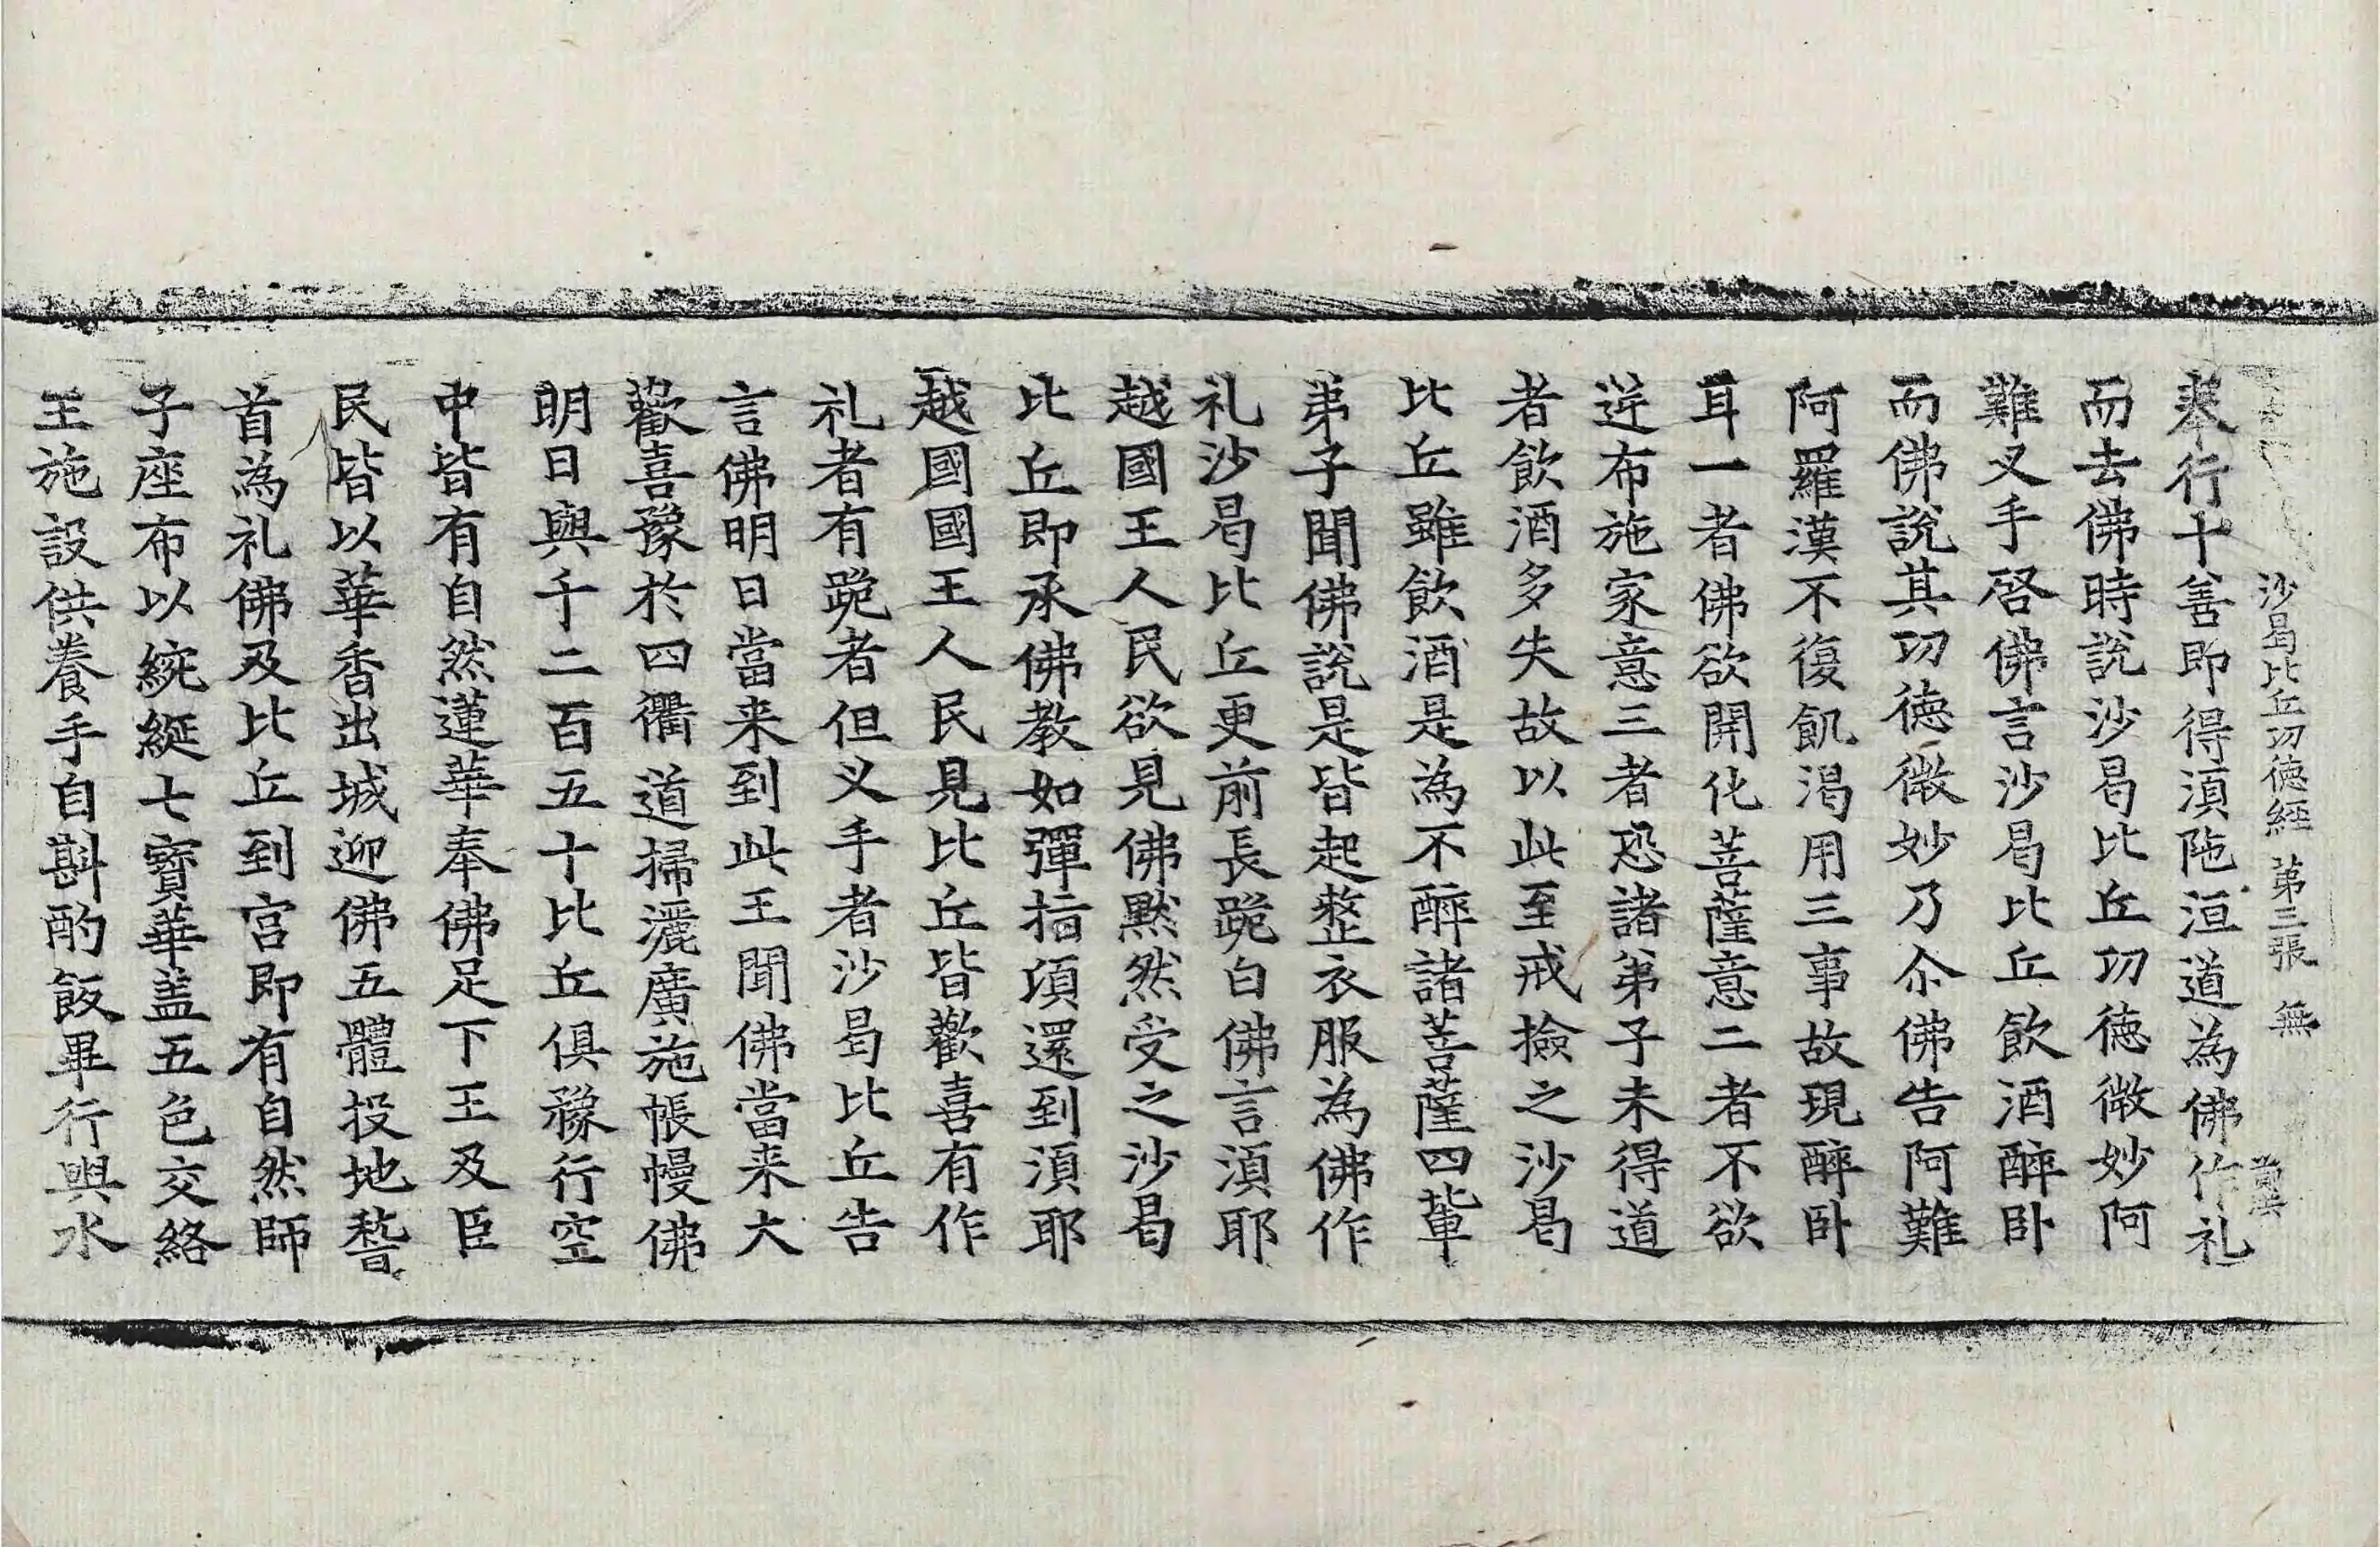 沙曷比丘功徳經 第三張 無
奉行十善即得湏陁洹道為佛作礼
而去佛時說沙曷比丘功徳微妙阿
難叉手啓佛言沙曷比丘飲酒醉卧
而佛說其功徳微妙乃尒佛告阿難
阿羅漢不復飢渴用三事故現醉卧
耳一者佛欲開化菩薩意二者不欲
逆布施家意三者恐諸弟子未得道
者飲酒多失故以此至戒撿之沙曷
比丘雖飲酒是為不醉諸菩薩四輩
弟子聞佛說是皆起整衣服為佛作
礼沙曷比丘更前長跪白佛言湏耶
越國王人民欲見佛黙然受之沙曷
比丘即承佛教如彈指頃還到湏耶
越國國王人民見比丘皆歡喜有作
礼者有跪者但义手者沙曷比丘告
言佛明日當来到此王聞佛當来大
歡喜豫於四衢道掃灑廣施帳幔佛
明日與千二百五十比丘俱豫行空
中皆有自然蓮華奉佛足下王及臣
民皆以華香出城迎佛五體投地䭫
首為礼佛及比丘到宮即有自然師
子座布以綩綖七寶華盖五色交絡
王施設供養手自斟酌飯畢行與水